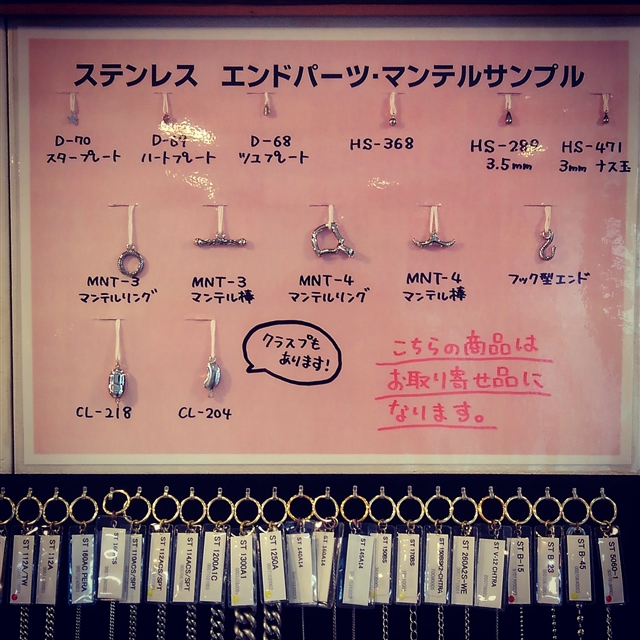 ステンレス エンドパーツ・マンテルサンプル
D-70
スタープレート
D-69
ハートプレート
D-68
ツユプレート
HS-368
HS-289
3.5mm
HS-471
3mm ナス玉
MNT-3
マンテルリング
MNT-3
マンテル棒
MNT-4
マンテルリング
MNT-4
マンテル棒
フック型エンド
CL-218
CL-204
クラスプも
あります!
こちらの商品は
お取り寄せ品に
なります。
ST 112A
ST 112ACS/SPT
ST 114ACS/SPT
ST 1200A1C
ST 1300A1
ST 1250A
ST 140A14
ST 150BS
ST 170BS
ST 260ACS-WE
ST V-12 CHTRA
ST B-15
ST B-23
ST B-45
ST S080-1